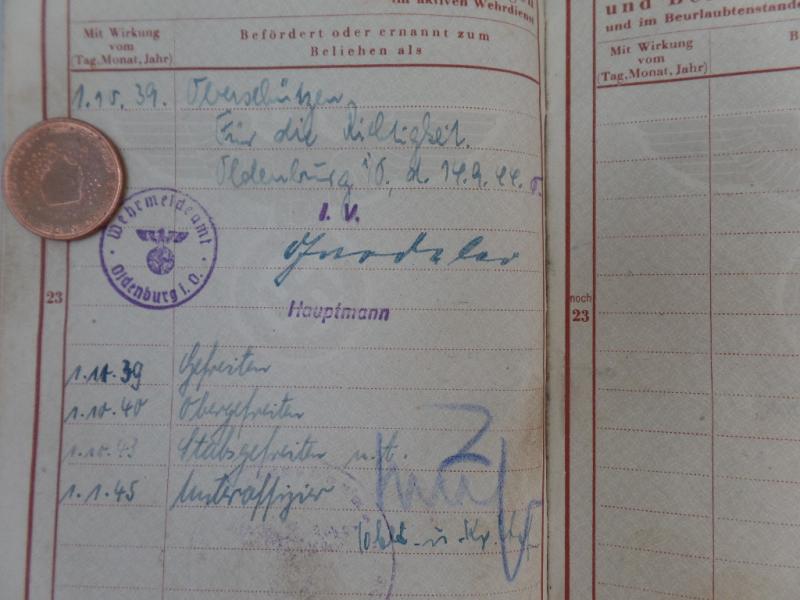 im aktiven Wehrdienst
Mit Wirkung
vom
(Tag, Monat, Jahr)
Befördert oder ernannt zum
Beliehen als
1.10.39. Oberschützen.
Für die Richtigkeit.
Oldenburg iO., d. 14.9.44.
I. V.
Wehrmeldeamt
Oldenburg i. O.
Hauptmann
23
1.11.39 Gefreiten
1.10.40 Obergefreiten
1.10.43 Stabsgefreiten
1.1.45 Unteroffizier
und
und im Beurlaubtenstande
Mit Wirkung
vom
(Tag, Monat, Jahr)
B
noch
23